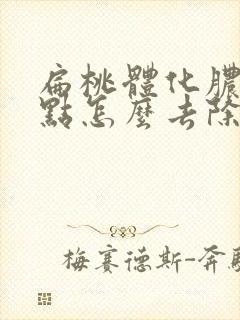 扁桃體化膿
點怎麼去除
梅賽德斯-奔馳